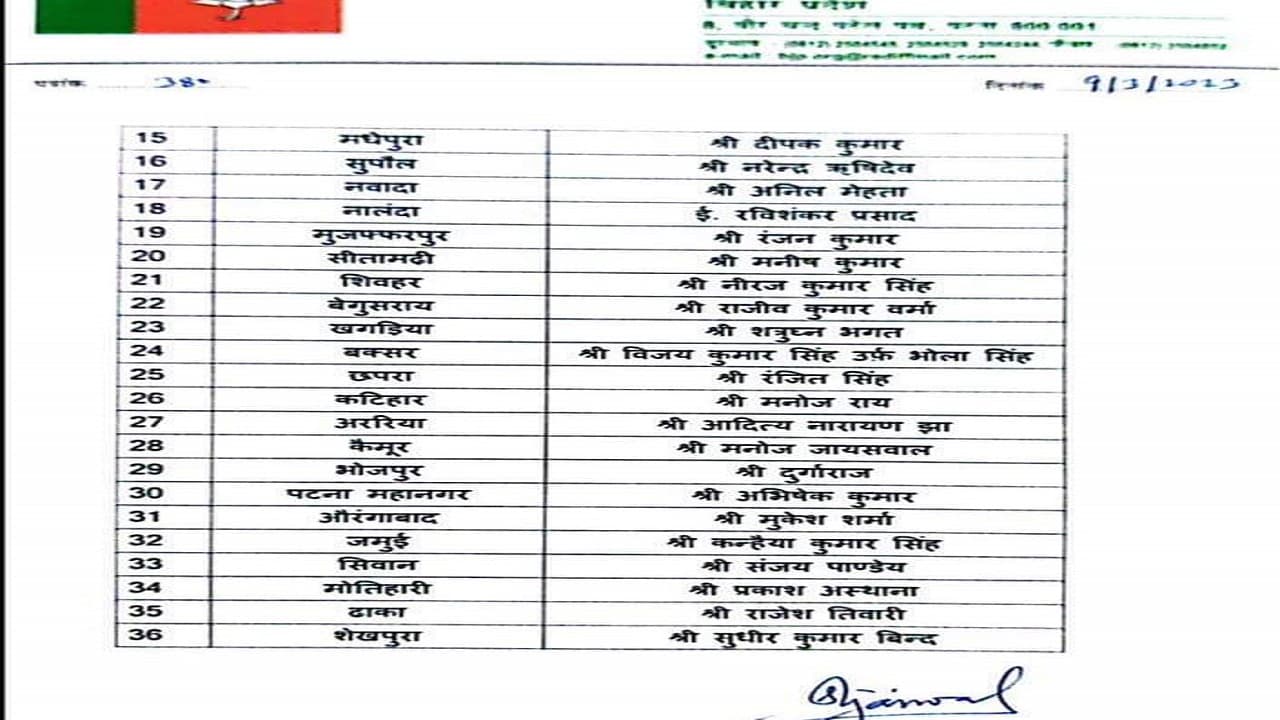 बिहार प्रदेश
पत्रांक ...... 380
दिनांक 9/3/2023
15 मधेपुरा श्री दीपक कुमार
16 सुपौल श्री नरेन्द्र ऋषिदेव
17 नवादा श्री अनिल मेहता
18 नालंदा ई. रविशंकर प्रसाद
19 मुजफ्फरपुर श्री रंजन कुमार
20 सीतामढ़ी श्री मनीष कुमार
21 शिवहर श्री नीरज कुमार सिंह
22 बेगुसराय श्री राजीव कुमार वर्मा
23 खगड़िया श्री शत्रुघ्न भगत
24 बक्सर श्री विजय कुमार सिंह उर्फ़ भोला सिंह
25 छपरा श्री रंजित सिंह
26 कटिहार श्री मनोज राय
27 अररिया श्री आदित्य नारायण झा
28 कैमूर श्री मनोज जायसवाल
29 भोजपुर श्री दुर्गाराज
30 पटना महानगर श्री अभिषेक कुमार
31 औरंगाबाद श्री मुकेश शर्मा
32 जमुई श्री कन्हैया कुमार सिंह
33 सिवान श्री संजय पाण्डेय
34 मोतिहारी श्री प्रकाश अस्थाना
35 ढाका श्री राजेश तिवारी
36 शेखपुरा श्री सुधीर कुमार बिन्द